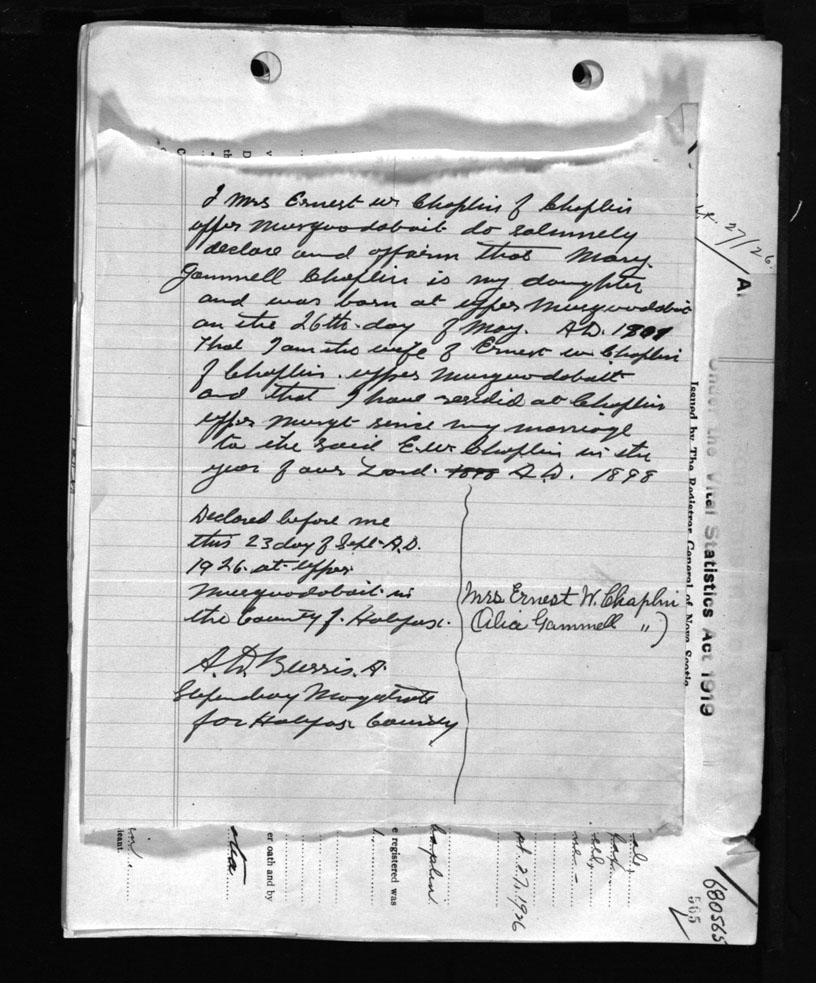 I Mrs Ernest W Chaplin of Chaplin
upper Musquodoboit do solemnely
declare and affirm that Mary
Gammell Chaplin is my daughter
and was born at upper Musquodoboit
on the 26th day of May. A.D.
That I am the wife of Ernest W Chaplin
of Chaplin. upper Musquodoboit
and that I have resided at Chaplin
upper Musqt since my marriage
to the said E.W. Chaplin in the
year of our Lord. 1898 A.D. 1898
Declared before me
this 23 day of Sept A.D.
1926 at upper
Musquodoboit in
the County of Halifax.
Mrs Ernest W. Chaplin
(Alea Gammell " )
A. D. Burris.
Stipendiary Magistrate
for Halifax County
27/26.
A
Under the Vital Statistics Act 1919
Issued by The Registrar General of Nova Scotia
leant.
er oath and by
e registered was
1.
haplin
pt. 27, 1926
680565
565